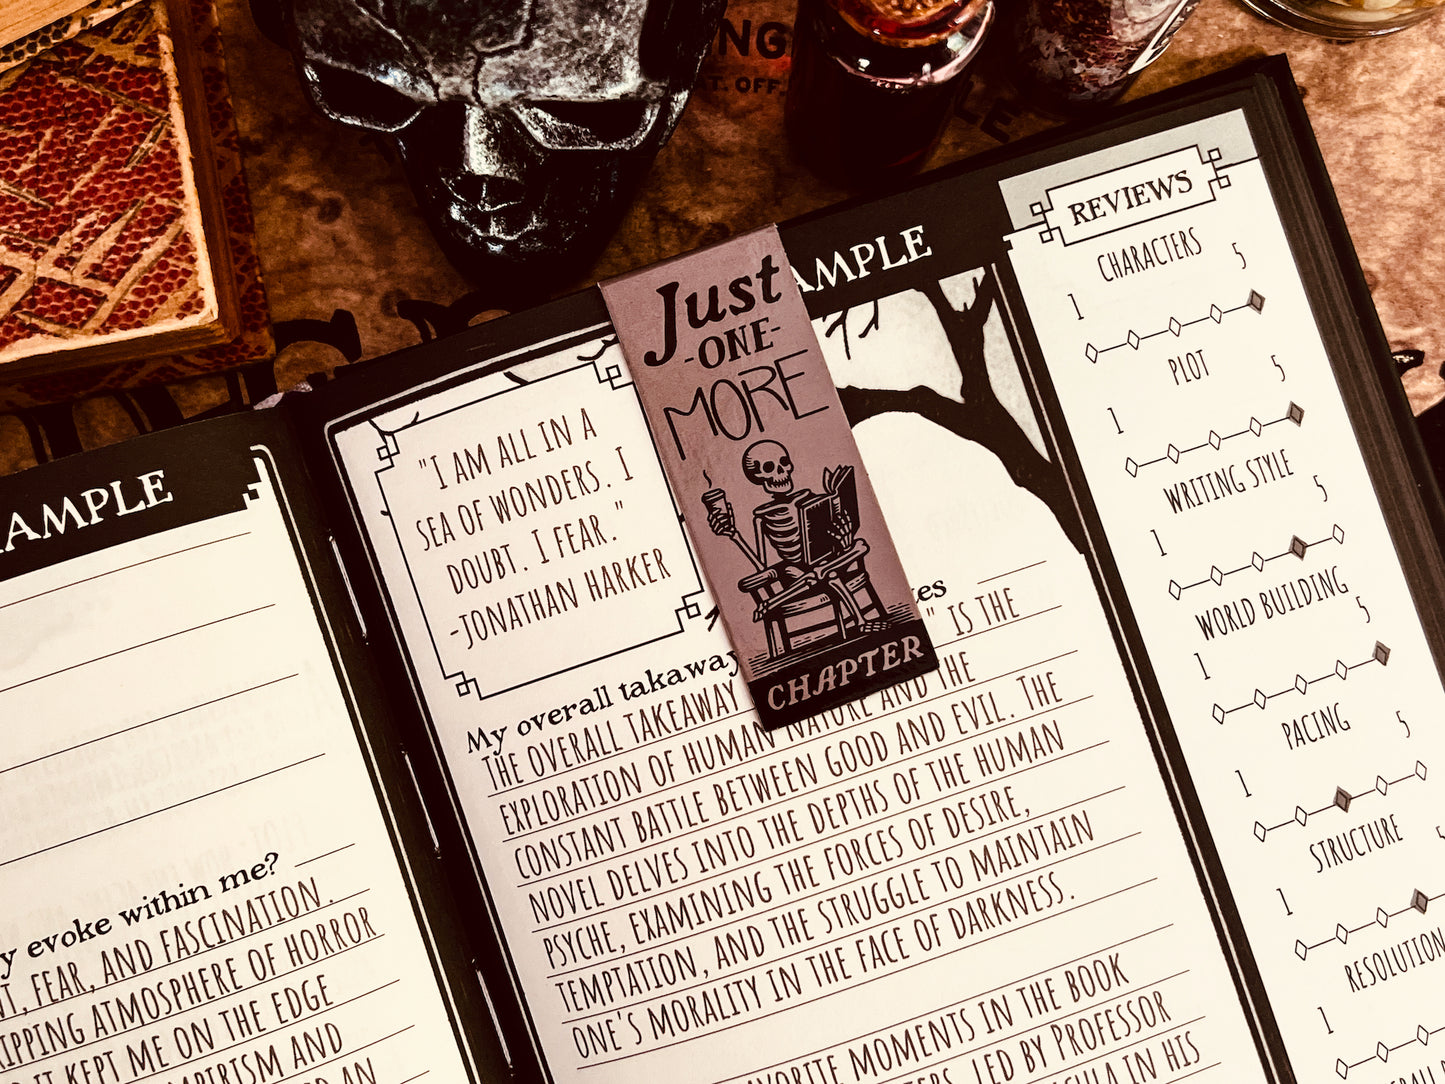 NG
T. OFF.
LE
AMPLE
y evoke within me?
NT, FEAR, AND FASCINATION.
RIPPING ATMOSPHERE OF HORROR
IT KEPT ME ON THE EDGE
MPIRISM AND
AN
AMPLE
"I AM ALL IN A
SEA OF WONDERS. I
DOUBT. I FEAR."
-JONATHAN HARKER
Just
-ONE-
MORE
CHAPTER
My overall takeaway
tes
THE OVERALL TAKEAWAY " IS THE
EXPLORATION OF HUMAN NATURE AND THE
CONSTANT BATTLE BETWEEN GOOD AND EVIL. THE
NOVEL DELVES INTO THE DEPTHS OF THE HUMAN
PSYCHE, EXAMINING THE FORCES OF DESIRE,
TEMPTATION, AND THE STRUGGLE TO MAINTAIN
ONE'S MORALITY IN THE FACE OF DARKNESS.
AVORITE MOMENTS IN THE BOOK
TERS, LED BY PROFESSOR
CULA IN HIS
REVIEWS
CHARACTERS
1 5
PLOT
1 5
WRITING STYLE
1 5
WORLD BUILDING
1 5
PACING
1 5
STRUCTURE
1 5
RESOLUTION
1